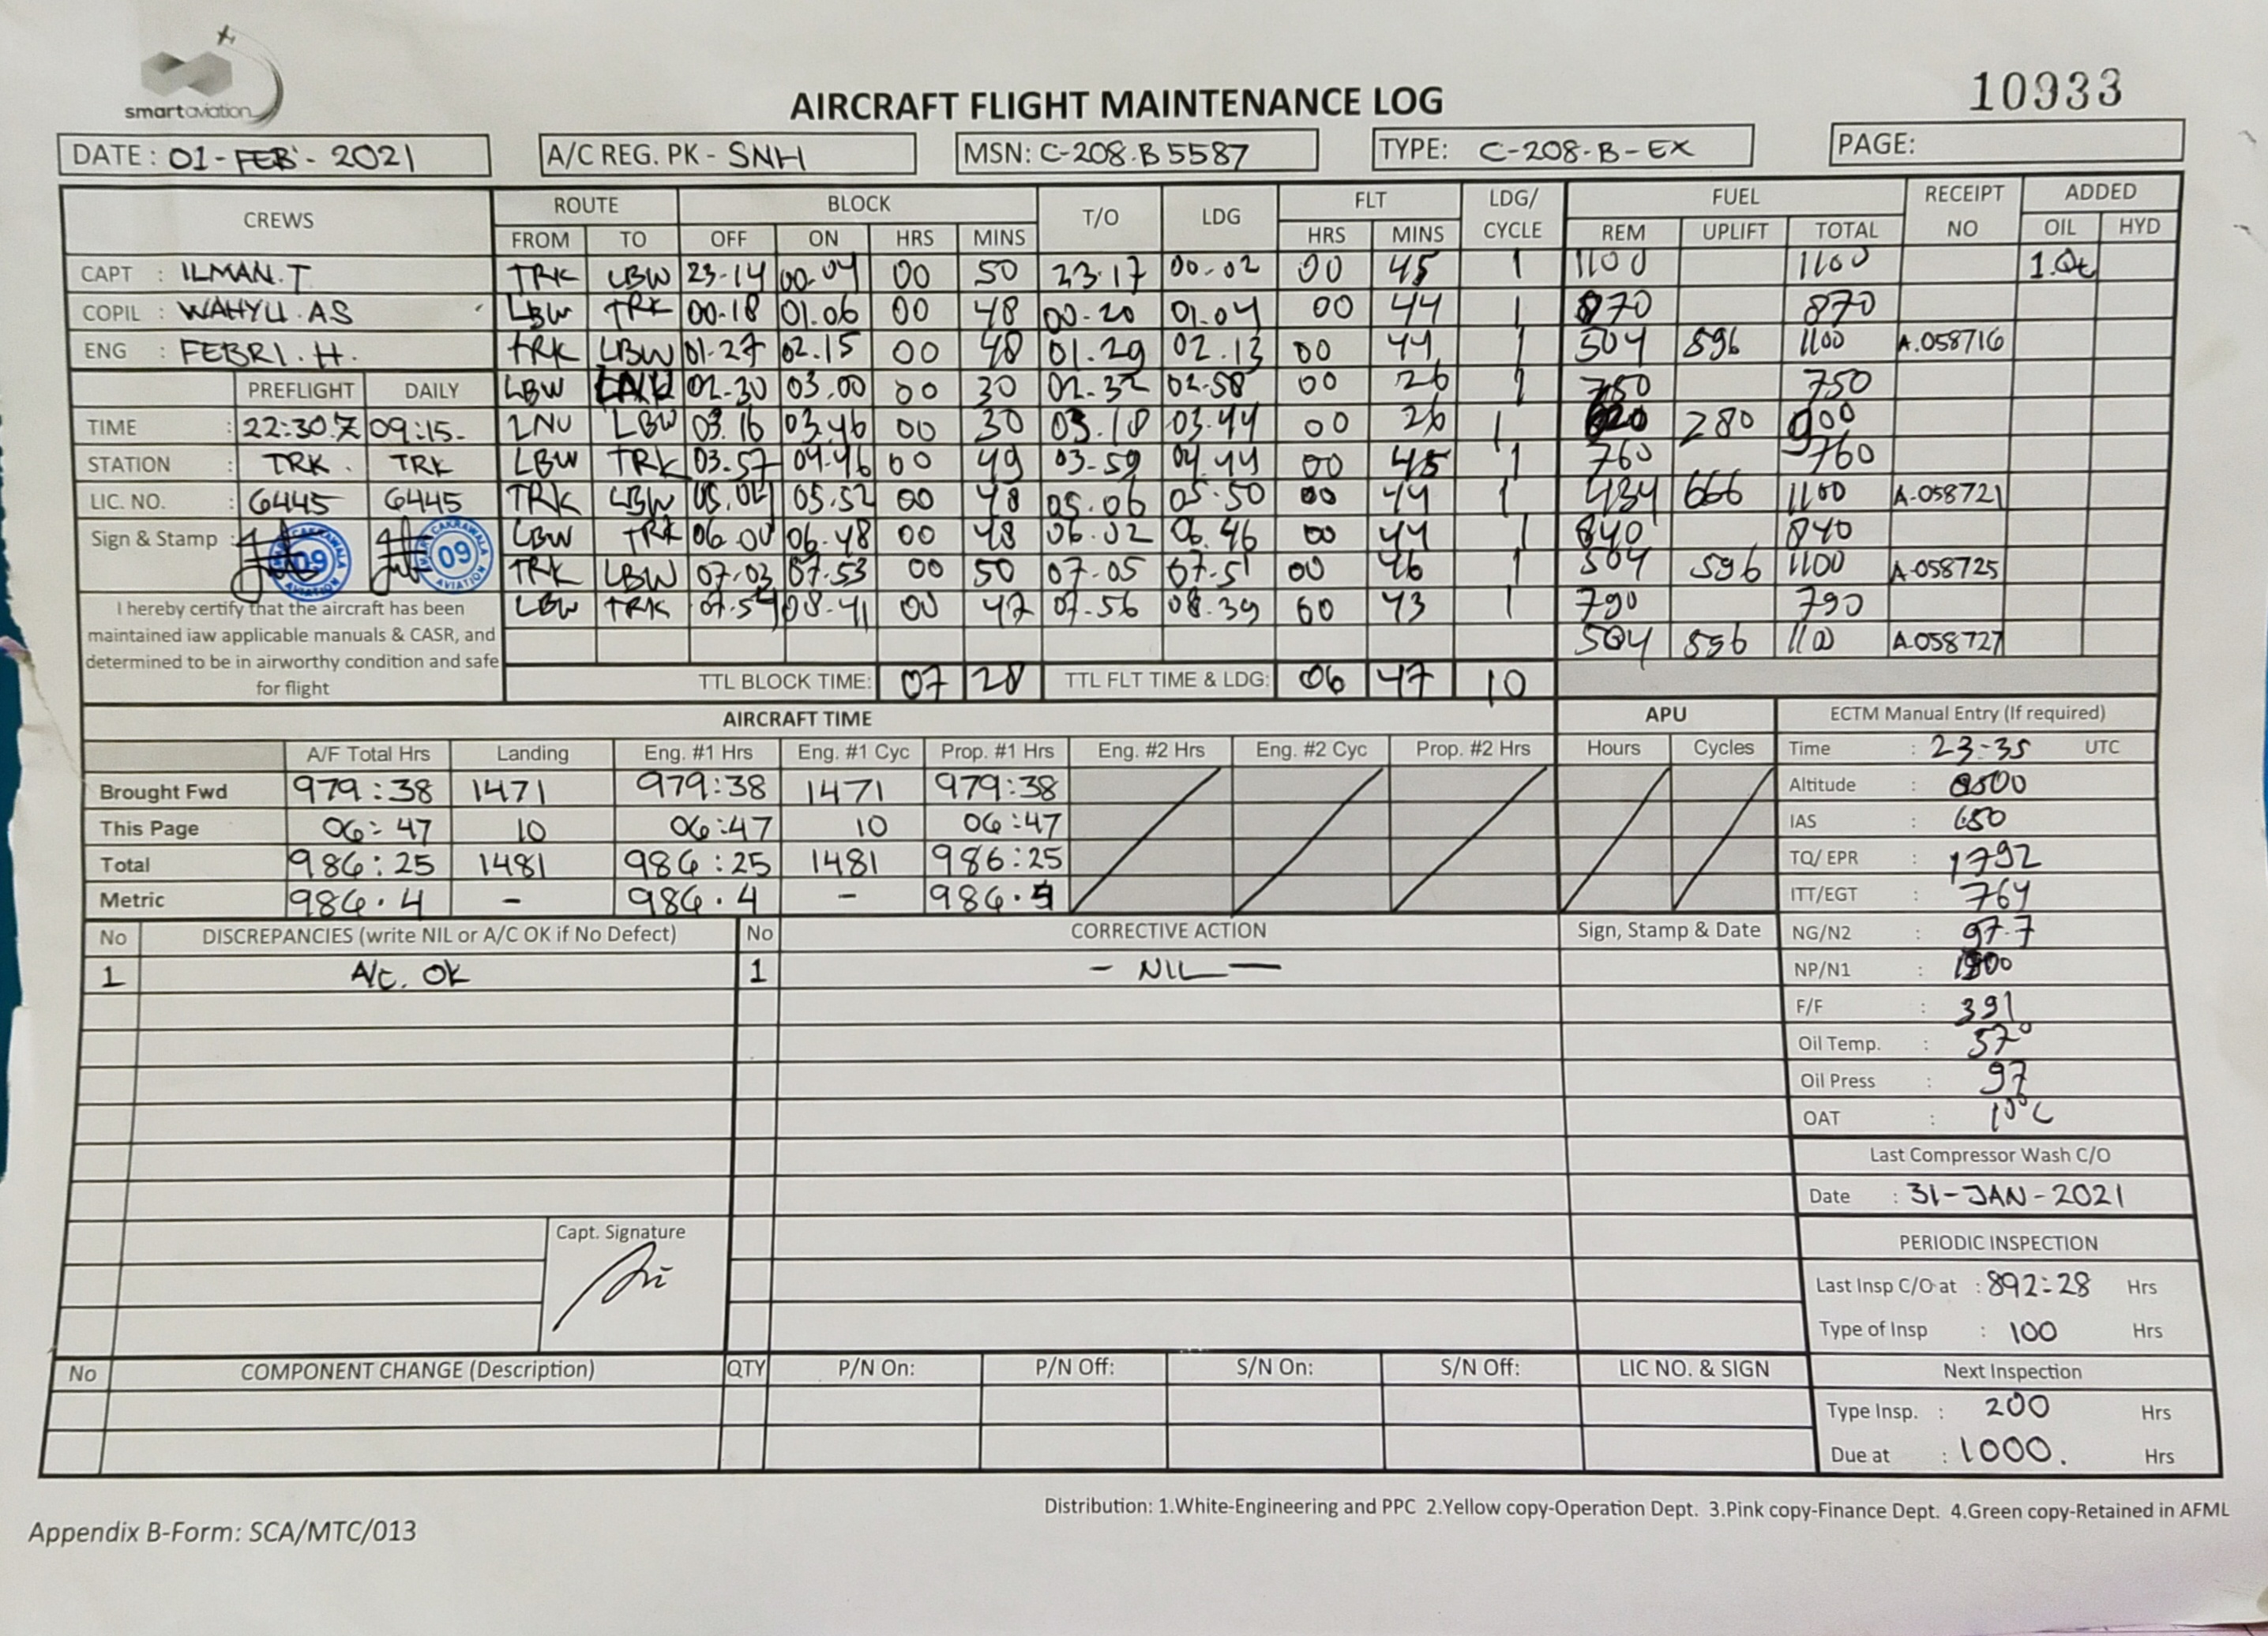 smartaviation
AIRCRAFT FLIGHT MAINTENANCE LOG
10933
DATE : 01-FEB'-2021
A/C REG. PK - SNH
MSN: C-208.B 5587
TYPE: C-208-B-EX
PAGE:
CREWS ROUTE BLOCK T/O LDG FLT LDG/ CYCLE FUEL RECEIPT NO ADDED
FROM TO OFF ON HRS MINS HRS MINS REM UPLIFT TOTAL OIL HYD
CAPT : ILMAN.T TRK LBW 23-14 00-04 00 50 23.17 00-02 00 45 1 1100 1100 1.Qt
COPIL : WAHYU.AS LBW TRK 00-18 01.06 00 48 00-20 01.04 00 44 1 870 870
ENG : FEBRI.H. TRK LBW 01-27 02.15 00 48 01.29 02.13 00 44 1 504 596 1100 A.058716
PREFLIGHT DAILY LBW 02-30 03.00 00 30 02-32 02-58 00 26 1 750 750
TIME : 22:30.Z 09:15. LNU LBW 03.16 03.46 00 30 03.18 03.44 00 26 1 620 280 900
STATION : TRK. TRK LBW TRK 03.57 04-46 00 49 03-59 04.44 00 45 1 760 760
LIC. NO. : 6445 6445 TRK LBW 05.04 05.52 00 48 05.06 05.50 00 44 1 434 666 1100 A-058721
Sign & Stamp : CAKRAWALA 09 AVIATION CAKRAWALA 09 AVIATION LBW TRK 06.00 06.48 00 48 06.02 06.46 00 44 1 840 840
TRK LBW 07.03 07.53 00 50 07.05 07.51 00 46 1 504 596 1100 A-058725
LBW TRK 07.54 08-41 00 47 07.56 08.39 00 43 1 790 790
504 596 1100 A.058727
I hereby certify that the aircraft has been
maintained iaw applicable manuals & CASR, and
determined to be in airworthy condition and safe
for flight
TTL BLOCK TIME: 07 28 TTL FLT TIME & LDG: 06 47 10
AIRCRAFT TIME APU ECTM Manual Entry (If required)
A/F Total Hrs Landing Eng. #1 Hrs Eng. #1 Cyc Prop. #1 Hrs Eng. #2 Hrs Eng. #2 Cyc Prop. #2 Hrs Hours Cycles
Brought Fwd 979:38 1471 979:38 1471 979:38
This Page 06:47 10 06:47 10 06:47
Total 986:25 1481 986:25 1481 986:25
Metric 986.4 - 986.4 - 986.4
Time : 23-35 UTC
Altitude : 8500
IAS : 150
TQ/ EPR : 1792
ITT/EGT : 764
NG/N2 : 97.7
NP/N1 : 1800
F/F : 391
Oil Temp. : 57°
Oil Press : 97
OAT : 10°C
No DISCREPANCIES (write NIL or A/C OK if No Defect) No CORRECTIVE ACTION Sign, Stamp & Date
1 A/C. OK 1 - NIL -
Last Compressor Wash C/O
Date : 31-JAN-2021
Capt. Signature
PERIODIC INSPECTION
Last Insp C/O at : 892:28 Hrs
Type of Insp : 100 Hrs
Next Inspection
Type Insp. : 200 Hrs
Due at : 1000. Hrs
No COMPONENT CHANGE (Description) QTY P/N On: P/N Off: S/N On: S/N Off: LIC NO. & SIGN
Distribution: 1.White-Engineering and PPC 2.Yellow copy-Operation Dept. 3.Pink copy-Finance Dept. 4.Green copy-Retained in AFML
Appendix B-Form: SCA/MTC/013